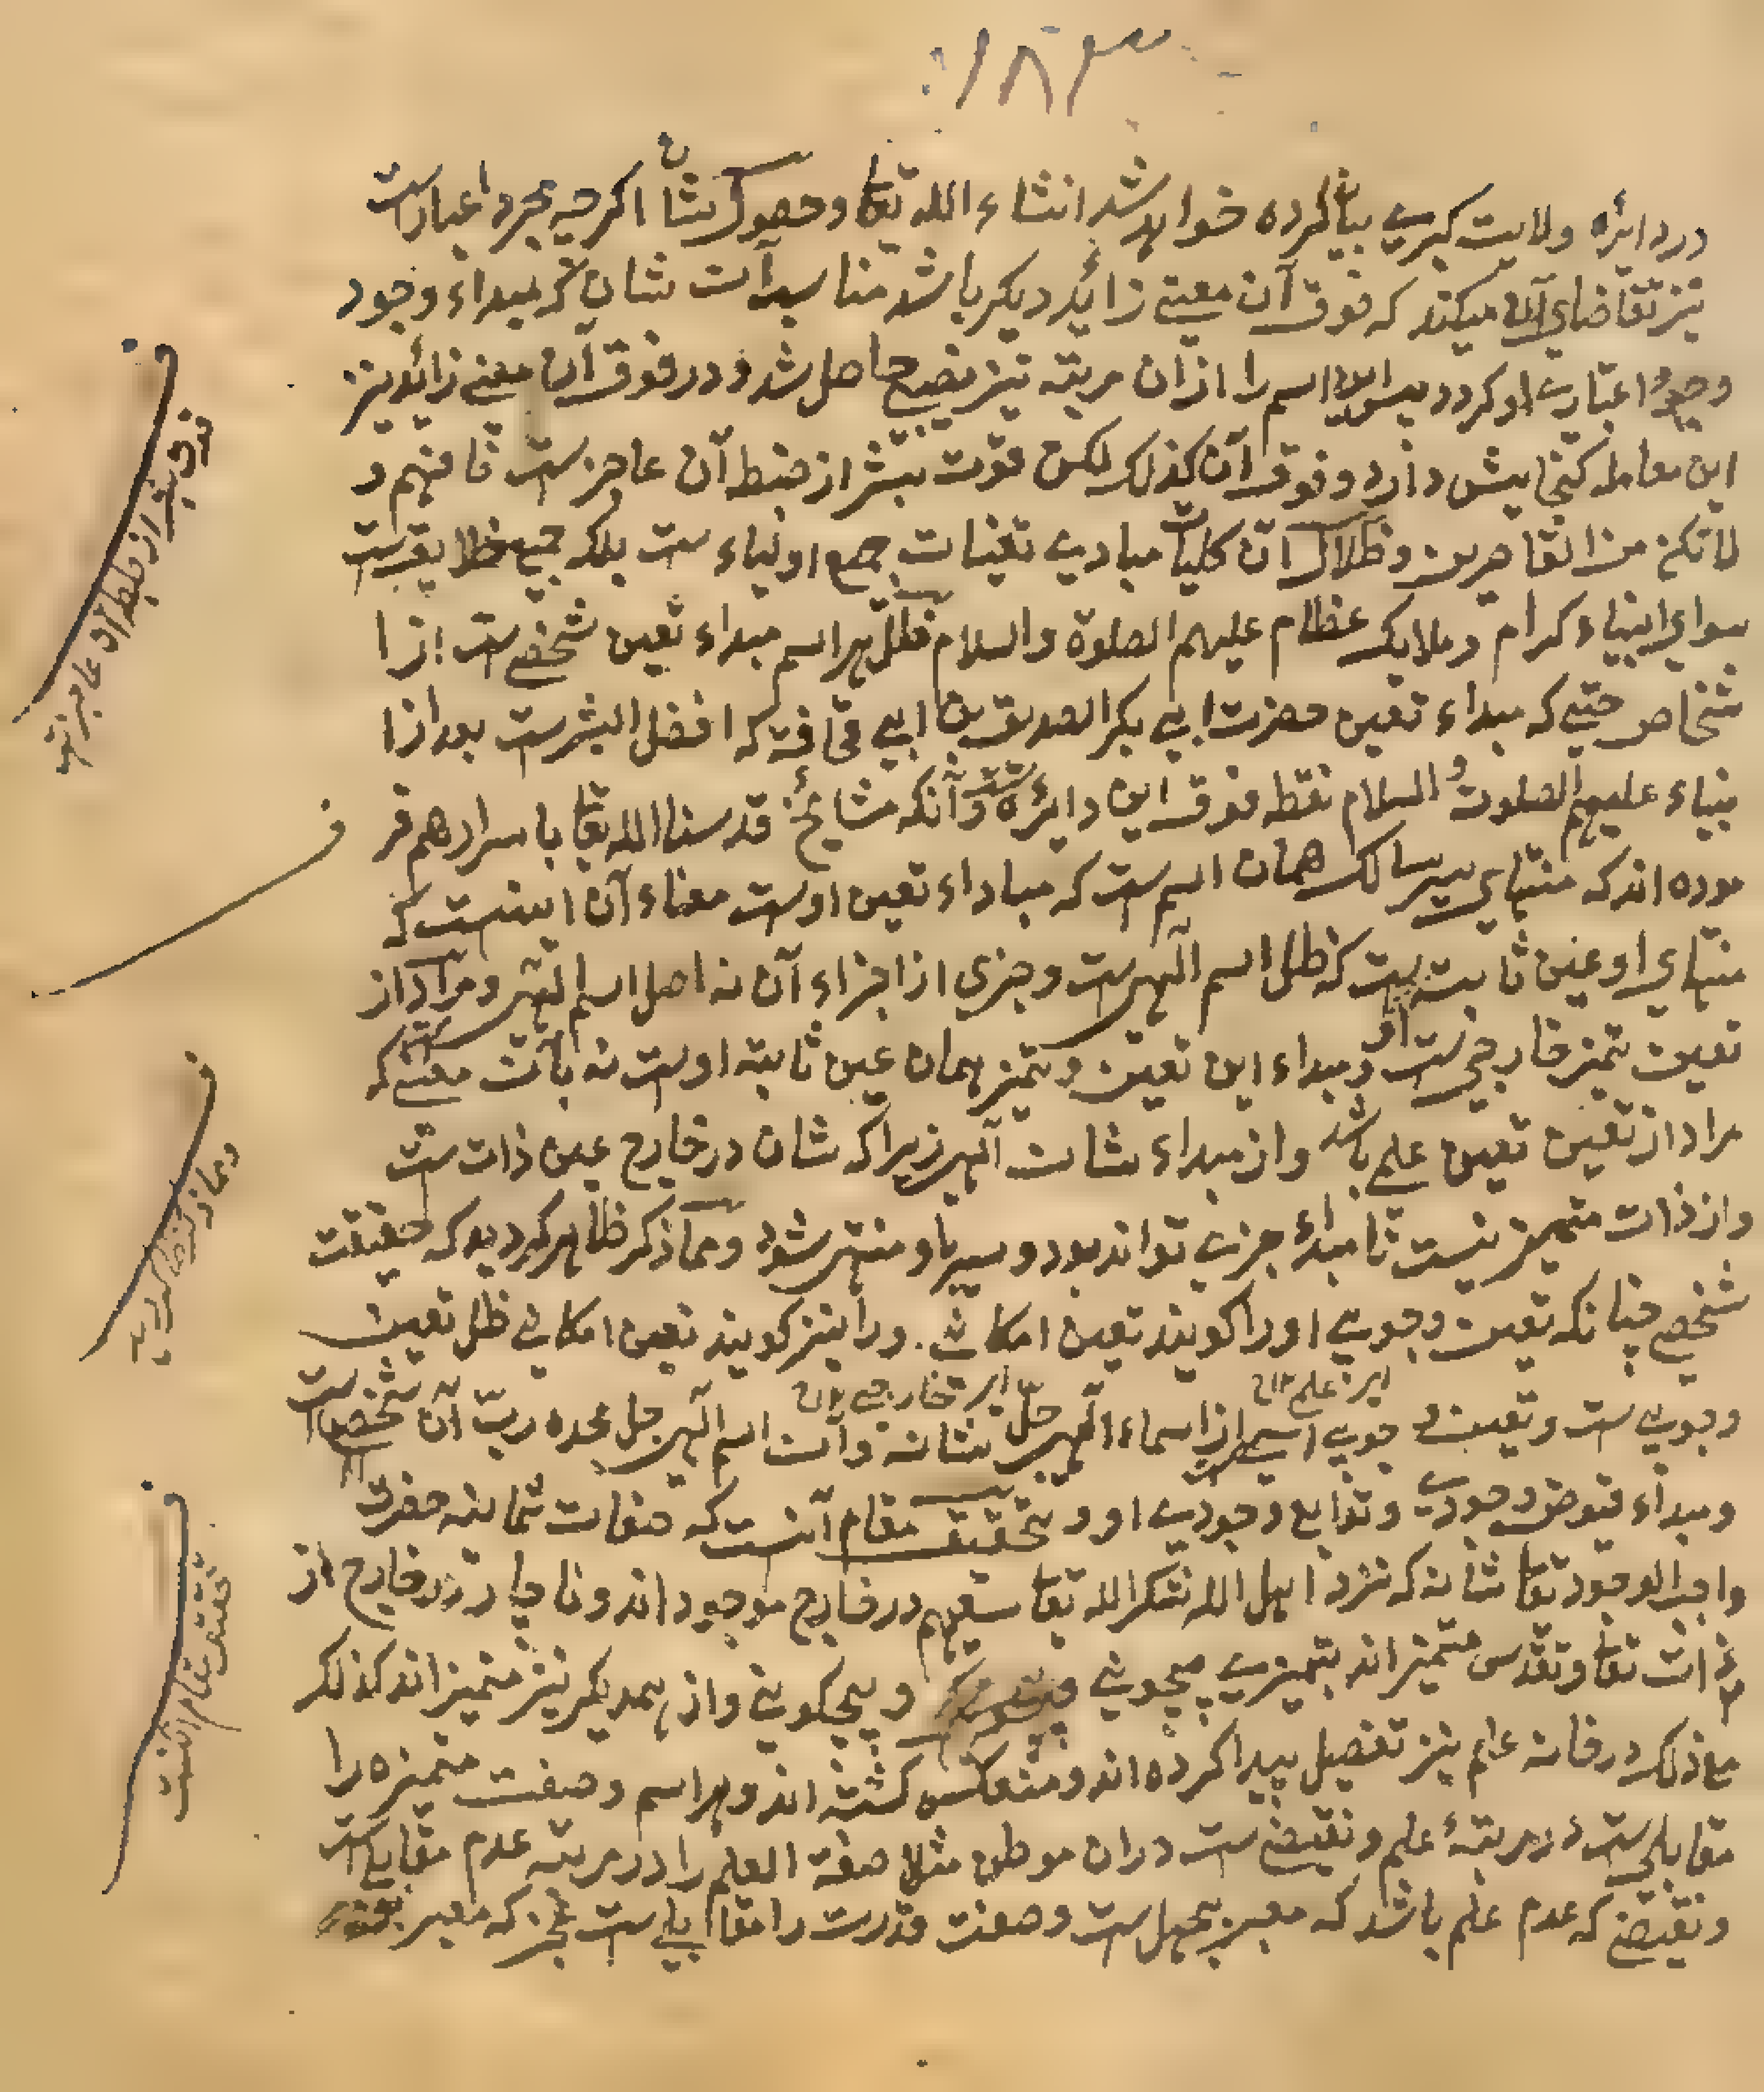 در دائره ولایت کبری بیان کرده خواهد شد انشاء الله تعا وحصول شأن اکرچه مجرد اعتبارست
نیز تقاضای آن میکند که فوق آن معنی زائد دیکر باشد مناسب آن شان که مبداء وجود
وجود اعتباری او کردد پس این اسم را ازان مرتبه نیز نصیبی حاصل شد و در فوق آن معنی زائد نیز
این معامله کنجایش دارد و فوق آن کذلک لکن قوت بشر از ضبط آن عاجزست فافهم و
لا تکن من القاصرین و ظلال آن کلیات مبادی تعینات جمیع اولیاء ست بلکه جمیع خلایق ست
سوای انبیاء کرام و ملایک عظام علیهم الصلوة والسلام ظل هر اسم مبداء تعین شخصی ست از ا
شخاص حتی که مبداء تعین حضرت ابی بکر الصدیق بن ابی قحافه که افضل البشرست بعد از ا
نبیاء علیهم الصلوت والسلام نقطه فوق این دایره ست و آنکه مشایخ قدسنا الله تعا باسرارهم فر
موده اند که منتهای سیر سالک همان اسم ست که مباداء تعین اوست معناء آن اینست که
منتهای او عین ثابته ست که ظل اسم الهی ست و جزی از اجزاء آن نه اصل اسم الهی و مراد از
تعین تمیز خارجی ست و مبداء این تعین و تمیز همان عین ثابته اوست نه بآن معنی که
مراد از تعین تعین علمی باشد و از مبداء شان الهی زیرا که شان در خارج عین ذات ست
و از ذات متمیز نیست تا مبداء جزی تواند بود و سیر باو منتهی شود و مما ذکر ظاهر کردید که حقیقت
شخصی چنانکه تعین وجوبی او را کویند تعین امکانی ورا نیز کویند تعین امکانی ظل تعین
ای علمی ای خارجی
وجوبی ست و تعین وجوبی اسمی از اسماء الهی جل شانه و آن اسم الهی جل مجده رب آن شخص ست
و مبداء فیوض وجودی و توابع وجودی او و تحقیق مقام آنست که صفات ثمانیه حضرت
واجب الوجود تعا شانه که نزد اهل الله شکر الله تعا سعیهم در خارج موجود اند و ناچار در خارج از
ذات تعا و تقدس متمیز اند بتمیزی بیچونی و بیچکونی و از همدیکر نیز متمیز اند کذلک
مع ذلک در خانه علم نیز تفصیل پیدا کرده اند و منعکس کشته اند و هر اسم و صفت متمیزه را
مقابلی ست در مرتبهٔ علم و نقیضی ست دران موطن مثلا صفة العلم را در مرتبه عدم مقابلی ست
و نقیضی که عدم علم باشد که معبر بجهل ست و صفت قدرت را مقابلی ست عجز که معبر
فوق بشر از ضبط آن عاجز
و مما ذکر ظاهر کردید
تحقیق مقام آنست